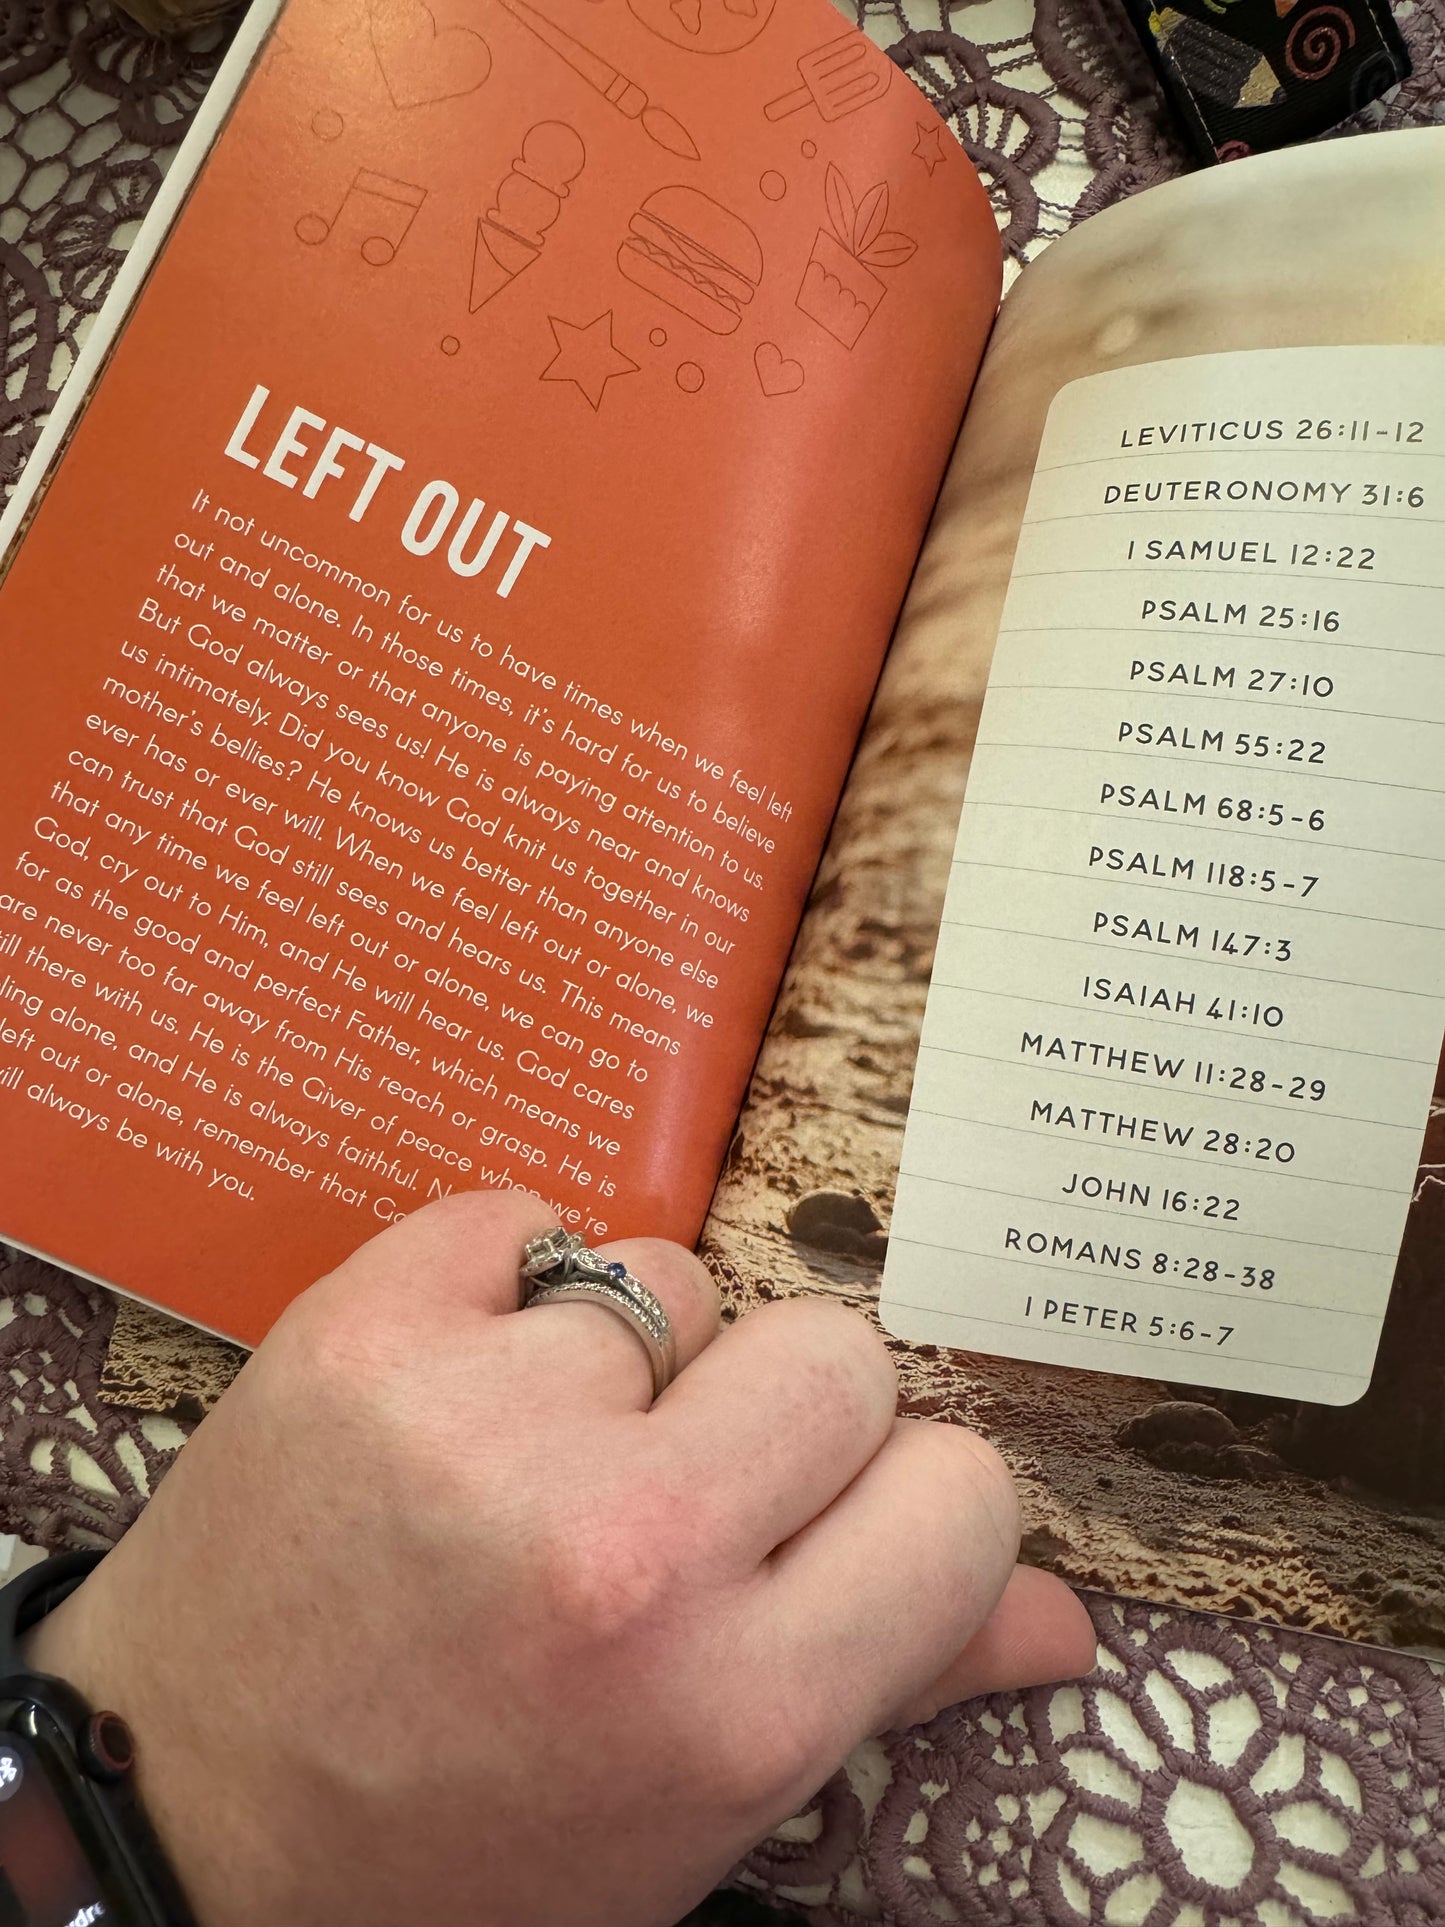 LEFT OUT
It not uncommon for us to have times when we feel left
out and alone. In those times, it's hard for us to believe
that we matter or that anyone is paying attention to us.
But God always sees us! He is always near and knows
us intimately. Did you know God knit us together in our
mother's bellies? He knows us better than anyone else
ever has or ever will. When we feel left out or alone, we
can trust that God still sees and hears us. This means
that any time we feel left out or alone, we can go to
God, cry out to Him, and He will hear us. God cares
for as the good and perfect Father, which means we
are never too far away from His reach or grasp. He is
there with us. He is the Giver of peace when we're
alone, and He is always faithful.
left out or alone, remember that
always be with you.
LEVITICUS 26:11-12
DEUTERONOMY 31:6
1 SAMUEL 12:22
PSALM 25:16
PSALM 27:10
PSALM 55:22
PSALM 68:5-6
PSALM 118:5-7
PSALM 147:3
ISAIAH 41:10
MATTHEW 11:28-29
MATTHEW 28:20
JOHN 16:22
ROMANS 8:28-38
1 PETER 5:6-7